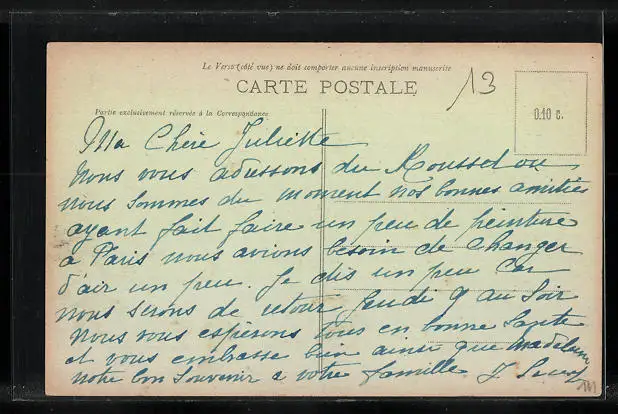 Le Verso (côté vue) ne doit comporter aucune inscription manuscrite
CARTE POSTALE
13
0.10 c.
Partie exclusivement réservée à la Correspondance
Ma Chère Juliette
Nous vous adressons du Rousset ou
nous sommes du moment nos bonnes amitiés
ayant fait faire un peu de peinture
a Paris nous avions besoin de changer
d'air un peu. Je dis un peu car
nous serons de retour Jeudi 9 au Soir
Nous vous espérons tous en bonne Santé
et vous embrasse bien ainsi que Madeleine
notre bon Souvenir a votre famille J